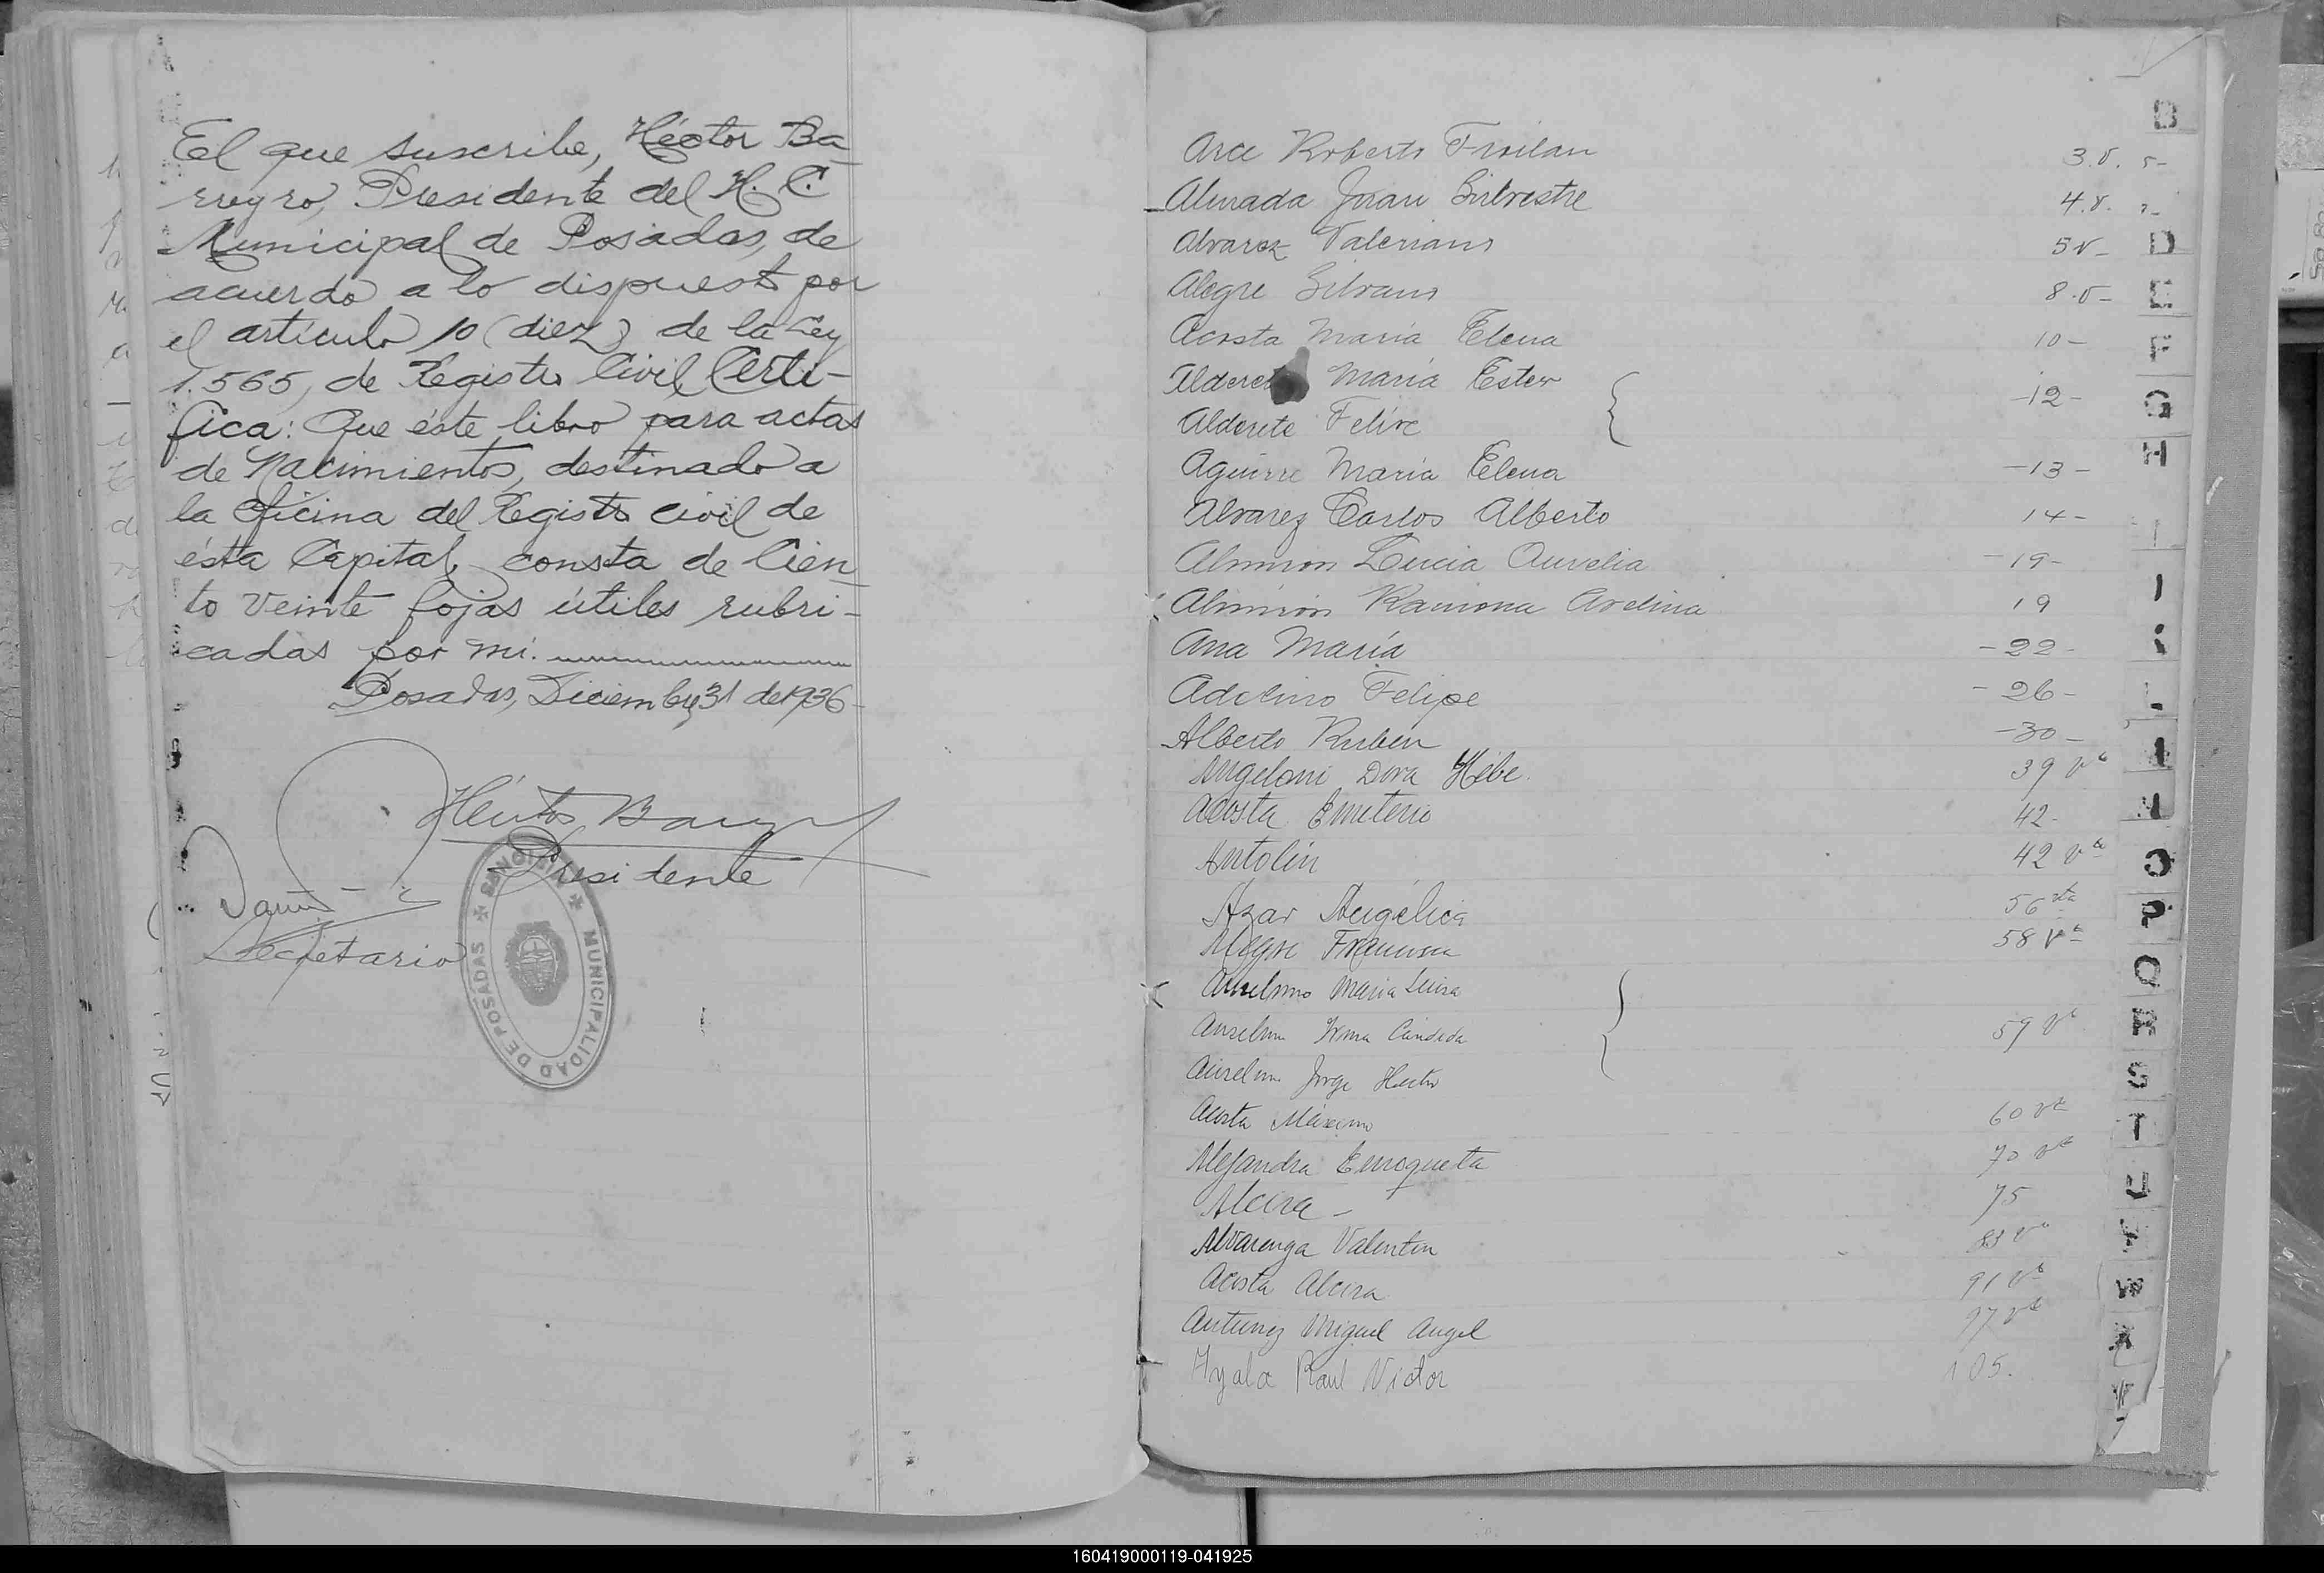 El que suscribe, Héctor Ba
rreyro, Presidente del H. C.
Municipal de Posadas, de
acuerdo a lo dispuesto por
el artículo 10 (diez) de la Ley
1.565, de Registro Civil, Certi-
fica: Que éste libro para actas
de Nacimientos, destinado a
la Oficina del Registro civil de
ésta Capital, consta de Cien
to veinte fojas útiles rubri-
cadas por mi.
Posadas, Diciembre 31 de 1936-
Presidente
Secretario
MUNICIPALIDAD DE POSADAS
MISIONES
Arce Roberto Froilan 3.v.
Almada Juan Silvestre 4.v.
Alvarez Valeriano 5v-
Alegre Silvano 8.v-
Acosta María Elena 10-
Alderete María Ester
-12-
Alderete Felipe
Aguirre Maria Elena -13-
Alvarez Carlos Alberto 14-
Almiron Lucia Aurelia -19-
Almirón Ramona Avelina 19
Ana María -22-
Adelino Felipe -26-
Alberto Ruben -30-
Angeloni Dora Hebe. 39 vta
Acosta Emeterio 42-
Antolín 42 vta
Azar Angélica 56 vta
Alegre Francisca 58 vta
Anselmo Maria Luisa
Anselmo Irma Cándida 59 vta
Anselmo Jorge Hector
Acosta Máximo 60 vta
Alejandra Enriqueta 70 vta
Alcira - 75
Alvarenga Valentin 83 vta
Acosta Alcira 91 vta
Antunez Miguel Angel 97 vta
Ayala Raul Victor 105.
B
D
E
F
G
H
I
O
P
Q
R
S
T
U
W
X
160419000119-041925